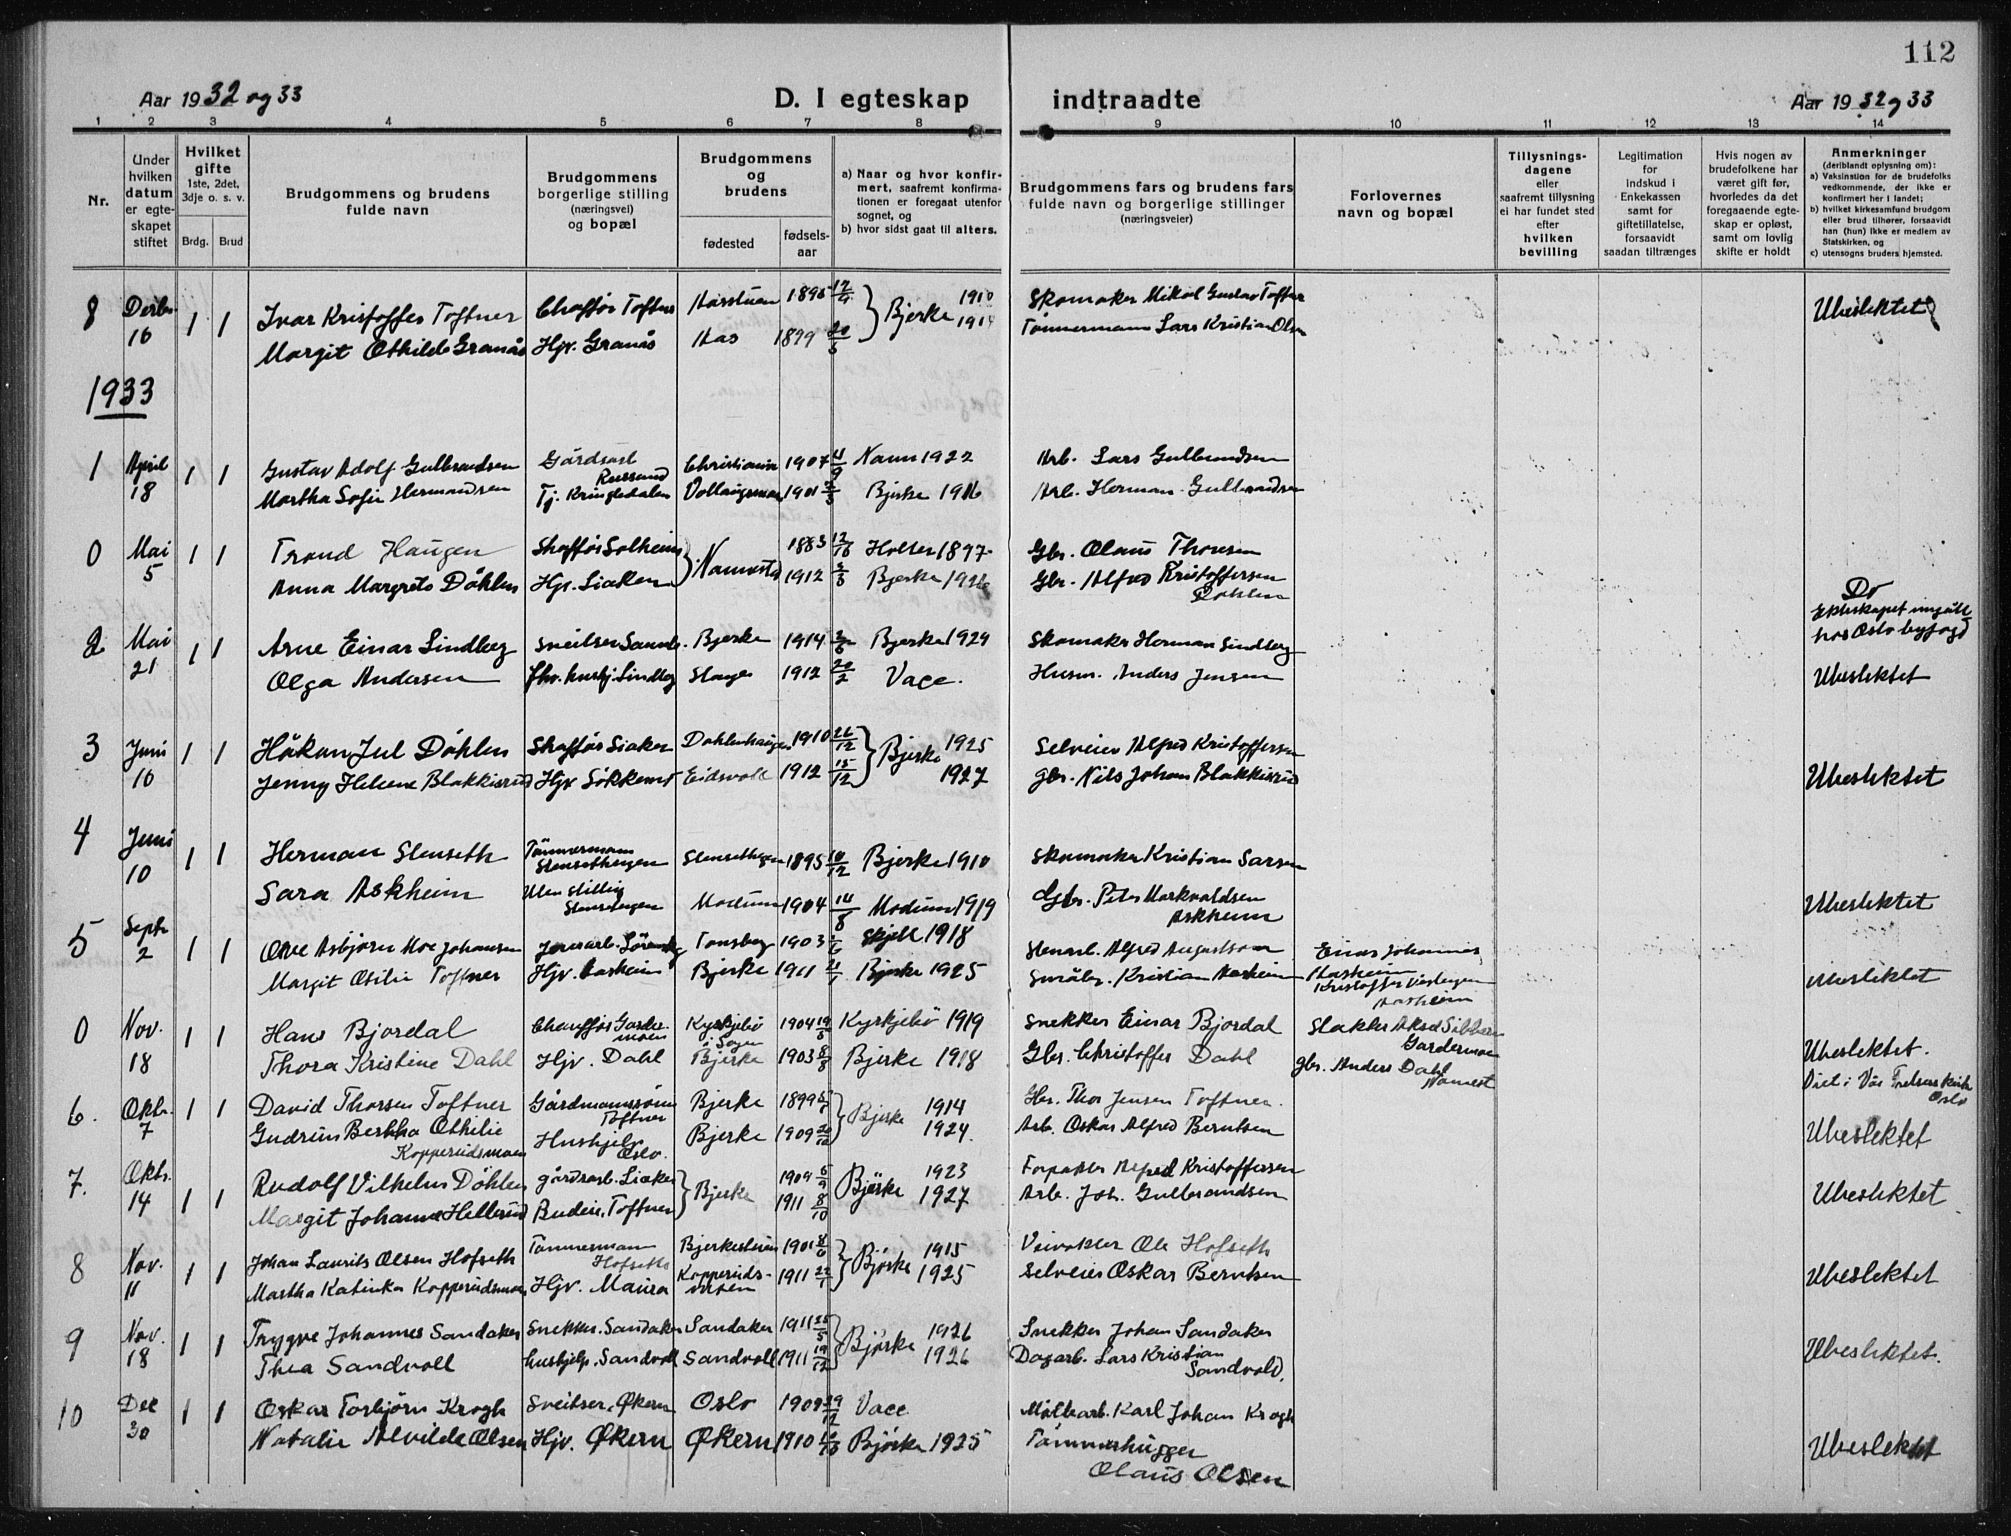 112
Aar 1932 og 33
D. I egteskap indtraadte
Aar 1932 og 33
1 2 3 4 5 6 7 8 9 10 11 12 13 14
Nr.
Under hvilken datum er egteskapet stiftet
Hvilket gifte 1ste, 2det, 3dje o. s. v.
Brdg. Brud
Brudgommens og brudens fulde navn
Brudgommens borgerlige stilling (næringsvei) og bopæl
Brudgommens og brudens
fødested
fødselsaar
a) Naar og hvor konfirmert, saafremt konfirmationen er foregaat utenfor sognet, og
b) hvor sidst gaat til alters.
Brudgommens fars og brudens fars fulde navn og borgerlige stillinger (næringsveier)
Forlovernes navn og bopæl
Tillysningsdagene eller saafremt tillysning ei har fundet sted efter hvilken bevilling
Legitimation for indskud i Enkekassen samt for giftetillatelse, forsaavidt saadan tiltrænges
Hvis nogen av brudefolkene har været gift før, hvorledes da det foregaaende egteskap er opløst, samt om lovlig skifte er holdt
Anmerkninger (deriblandt oplysning om):
a) Vaksinstion for de brudefolks vedkommende, der ikke er konfirmert her i landet;
b) hvilket kirkesamfund brudgom eller brud tilhører, forsaavidt han (hun) ikke er medlem av Statskirken, og
c) utensogns bruders hjemsted.
8 16 1 1 Ivar Kristoffer Toftner Chaffør Toftner 1895 Bjerke 1910 Skomaker Mikal Gustav Toftner Ubeslektet
Margit Othilde Granås Hjv. Granås Aas 1899 20/5 1914 Tømmermann Lars Kristian Olsen
1933
1 April 18 1 1 Gustav Adolf Gulbrandsen Gårdsarb. Christiania 1907 Nann 1922 Arb. Lars Gulbrandsen
Martha Sofie Hermandsen Tj. Kringledalen 1901 Bjerke 1916 Arb. Herman Gulbrandsen
0 Mai 5 1 1 Trond Haugen Shaffør Solheim Nannestad 1883 Holter 1897 Gbr. Olaus Thoresen
Anna Margrete Døhlen Hjv. Liaker 1912 Bjerke 1926 Gbr. Alfred Kristoffersen Døhlen
Do
Ekteskapet inngått hos Oslo byfogd
2 Mai 21 1 1 Arne Einar Lindberg Bjerke 1914 Bjerke 1929 Skomaker Herman Lindberg
Olga Andersen Stange 1912 20/2 Vace. Husm. Anders Jensen Ubeslektet
3 Juni 10 1 1 Håkon Jul Døhlen Shaffør Liaker Døhlenhaugen 1910 26/12 Bjerke 1925 Selveier Alfred Kristoffersen
Jenny Helene Blakkisrud Hjv. Eidsvoll 1912 15/12 1927 gbr. Nils Johan Blakkisrud Ubeslektet
4 Juni 10 1 1 Herman Stenseth Tømmermann Stensethengen Stensethengen 1895 10/12 Bjerke 1910 Skomaker Kristian Larsen
Sara Askheim Uten stilling Modum 1904 14/8 Modum 1919 Gbr. Peter Markvaldsen Askheim Ubeslektet
5 Septr 2 1 1 Ove Asbjørn Moe Johansen Tønsberg 1903 Skjelt 1918 Stenarb. Alfred Augustson Einar Johannes Aasheim
Margit Otilie Toftner Hjv. Aasheim Bjerke 1911 21/1 Bjerke 1925 Småbr. Kristian Aasheim Kristoffer Aasheim Ubeslektet
0 Nov. 18 1 1 Hans Bjordal Chauffør Gardermoen Kyrkjebø i Sogn 1904 19/5 Kyrkjebø 1919 Snekker Einar Bjordal Slakter Aksel Sibbern Gardermoen
Thora Kristine Dahl Hjv. Dahl Bjerke 1903 8/8 Bjerke 1918 Gbr. Christoffer Dahl gbr. Anders Dahl Nannest Ubeslektet.
Viet i Vår Frelsers kirke Oslo
6. Oktr. 7 1 1 David Thorsen Toftner Gårdmannssønn Toftner Bjerke 1899 Bjerke 1914 Gbr. Thor Jensen Toftner.
Gudrun Bertha Othilie Kopperudsmoen Hushjelp Oslo. Bjerke 1909 20/12 1924. Arb. Oskar Alfred Berntsen Ubeslektet
7. Oktr. 14 1 1 Rudolf Vilhelm Døhlen gårdsarb. Liaker Bjerke 1909 5/9 Bjerke 1923 Forpakter Alfred Kristoffersen
Margit Johanne Hellerud Budeie, Toftner 1911 8/10 1927 Arb. Joh. Gulbrandsen Ubeslektet
8 Nov. 11 1 1 Johan Laurits Olsen Hofseth Tømmermann Hofseth Bjerkestuen 1901 Bjerke 1915 Veivokter Ole Hofseth
Martha Katinka Kopperudsmoen Hjv. Maura Kopperudsmoen 1911 22/1 1925 Selveier Oskar Berntsen Ubeslektet
9 Nov. 18 1 1 Trygve Johannes Sandaker Snekker. Sandaker Sandaker 1911 Bjerke 1926 Snekker Johan Sandaker
Thea Sandvoll hushjelp. Sandvoll Sandvoll 1911 19/12 1926 Dagarb. Lars Kristian Sandvold. Ubeslektet.
10 Dec 30 1 1 Oskar Torbjørn Krogh Sveitser. Økern Oslo 1909 Vace Karl Johan Krogh
Natalie Alvilde Olsen Hjv. Økern Økern 1910 Bjerke 1925 Tømmerhugger Olaus Olsen Ubeslektet